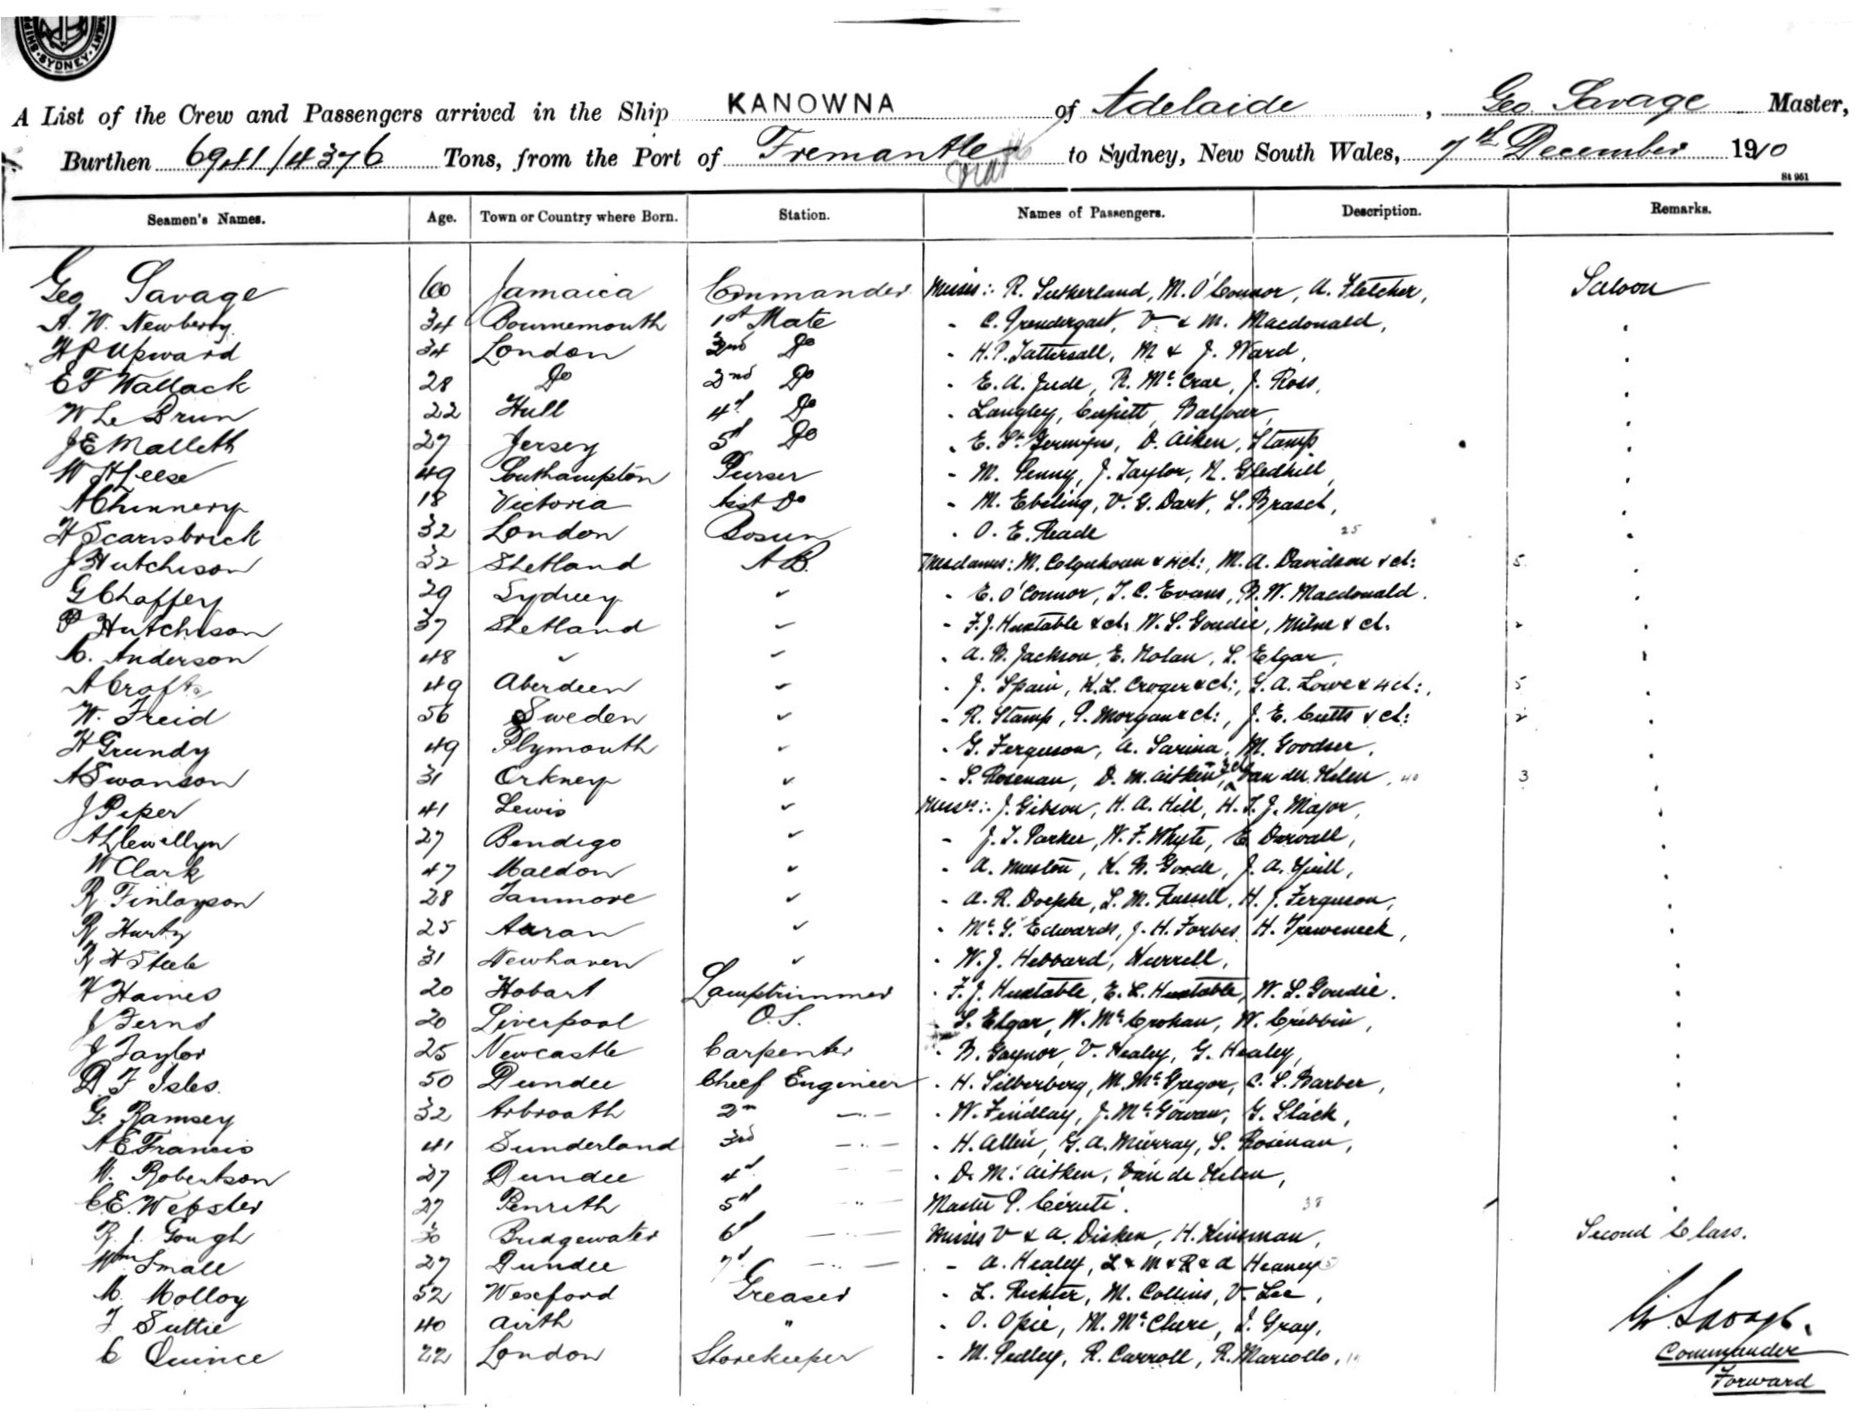 SYDNEY
A List of the Crew and Passengers arrived in the Ship KANOWNA of Adelaide, Geo Savage Master,
Burthen 6941/4376 Tons, from the Port of Fremantle to Sydney, New South Wales, 7th December 1910
St 951
Seamen's Names. Age. Town or Country where Born. Station. Names of Passengers. Description. Remarks.
Geo Savage 60 Jamaica Commander Misses:- R. Sutherland, M. O'Connor, A. Fletcher, Saloon
A. W. Newberry 34 Bournemouth 1st Mate - C. Prendergast, V & M. Macdonald,
H P Upward 34 London 2nd Do - H.P. Tattersall, M & J. Ward,
E F Wallack 28 Do 3rd Do - E. A. Jude, R. McCrae, J. Ross,
W Le Brun 22 Hull 4th Do - Langley, Balfour,
J E Malleth 27 Jersey 5th Do - E. St. Jermyns, D. Aitken, Stamp
W H Leese 49 Southampton Purser - M. Penny, J. Taylor, Gledhill,
A Chinnery 18 Victoria Asst Do - M. Ebeling, V. G. Dart, L. Brasch,
H Scarisbrick 32 London Bosun - O. E. Reade 25
J Hutchison 32 Shetland A B. Mesdames: M. Colquhoun & 4 ch:, M. A. Davidson & ch: 5
G Chaffey 29 Sydney " - E. O'Connor, T. C. Evans, B. W. Macdonald.
P Hutchison 37 Shetland " - F. J. Huxtable & ch. W. S. Goudie, Milne & ch. 2
A. Anderson 48 " " - A. B. Jackson, E. Nolan, L. Elgar,
A Crofts 49 Aberdeen " - J. Spain, K. L. Croger & ch:, G. A. Lowe & 4 ch:, 5
W. Freid 56 Sweden " - R. Stamp, P. Morgan & ch:, J. E. Cutts & ch: 2
H Grundy 49 Plymouth " - G. Ferguson, A. Sarina, M. Goodser,
A Swanson 31 Orkney " - S. Rosenau, D. M. Aitken, Van der Kelen, 40 3
J Piper 41 Lewis " Messrs:- J. Gibson, H. A. Hill, H. T. J. Major,
A Llewellyn 27 Bendigo " - J. T. Parker, W. F. Whyte, E. Durvall,
W Clark 47 Maldon " - A. Muston, K. B. Goode, J. A. Gill,
R Finlayson 28 Tanmore " - A. R. Doepke, L. M. Russell, H. J. Ferguson,
R Hurty 25 Arran " - McG. Edwards, J. H. Forbes, H. Treweneck,
R H Steele 31 Newhaven " - W. J. Hebbard, Hurrell,
F Haines 20 Hobart Lamptrimmer - F. J. Huxtable, E. L. Huxtable, W. S. Goudie.
J Ferns 20 Liverpool O.S. - L. Elgar, W. McCrohan, W. Cribbin,
J Taylor 25 Newcastle Carpenter - B. Gaynor, V. Healey, G. Healey,
D F Isles. 50 Dundee Chief Engineer - H. Silberberg, M. McGregor, C. S. Barber,
G. Ramsey 32 Arbroath 2nd " - W. Findlay, J. McGowan, G. Slack,
A E Francis 41 Sunderland 3rd " - H. Allen, G. A. Murray, S. Rosenau,
W. Robertson 27 Dundee 4th " - D. M. Aitken, Van de Kelen,
C. E. Webster 27 Penrith 5th " Master P. Ceruti. 38
R. J. Gough 30 Bridgewater 6th " Misses V & A. Dicken, H. Kinsman, Second Class.
Wm Small 27 Dundee 7th " - A. Healey, L & M & R & A Heaney
M. Molloy 52 Wexford Greaser - L. Richter, M. Collins, V. Lee,
F Suttie 40 Airth " - O. Opie, M. McClure, J. Gray,
C Quince 22 London Storekeeper - M. Pedley, R. Carroll, R. Mariollo,
G. Savage.
Commander
Forward